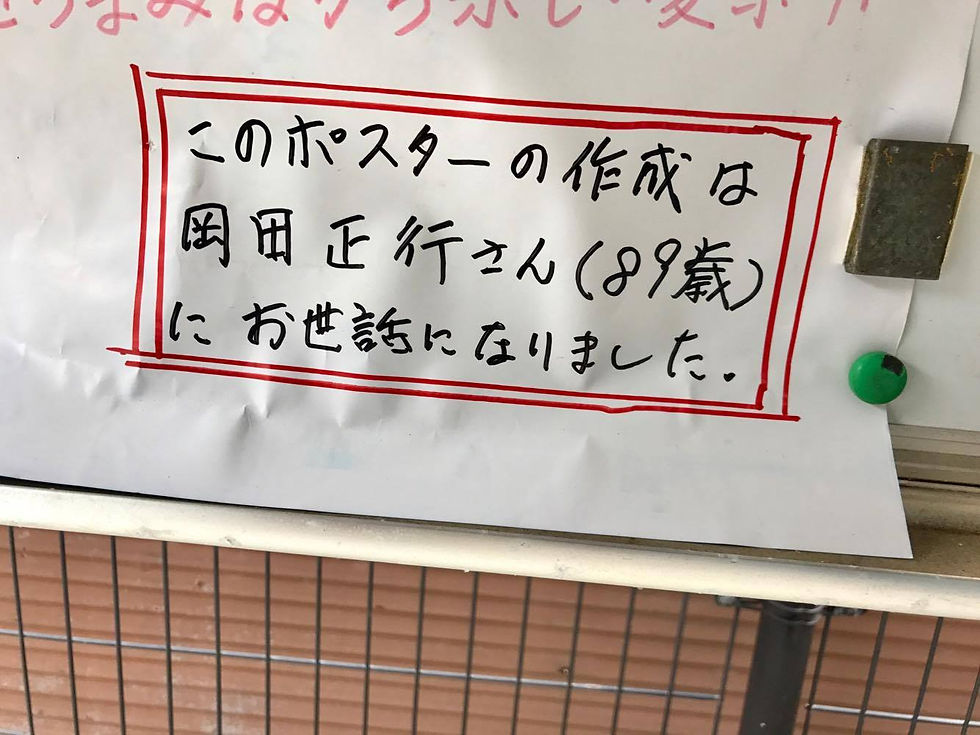 このポスターの作成は
岡田正行さん(89歳)
にお世話になりました.